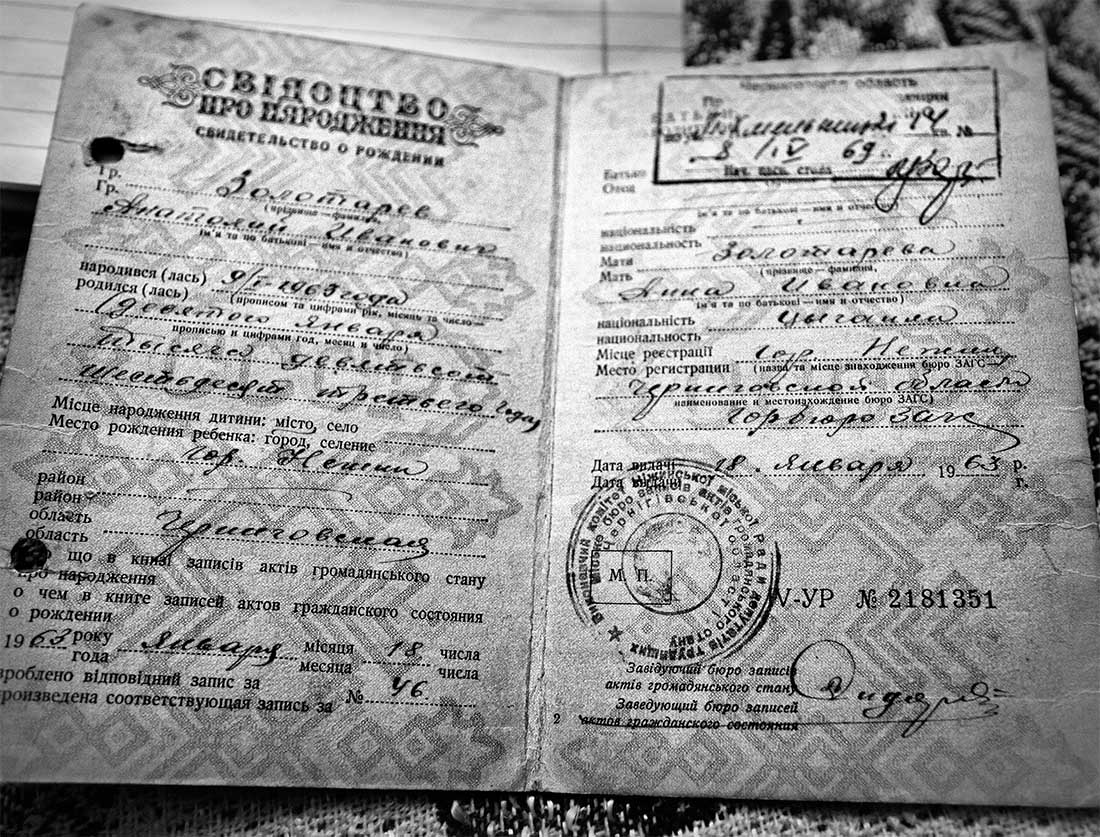 СВІДОЦТВО
ПРО НАРОДЖЕННЯ
СВИДЕТЕЛЬСТВО О РОЖДЕНИИ
Гр.
Гр. Золотарев
(прізвище — фамилия)
Анатолий Иванович
(ім'я та по батькові — имя и отчество)
народився (лась) 9/I-1963 года
родился (лась)
(прописом та цифрами рік, місяць та число —
(девятого января
прописью и цифрами год, месяц и число)
тысяча девятьсот
шестьдесят третьего года)
Місце народження дитини: місто, село
Место рождения ребенка: город, селение
гор. Нежин
район
район
область
область Черниговская
що в книзі записів актів громадянського стану
про народження
о чем в книге записей актов гражданского состояния
о рождении
1963 року января місяця 18 числа
года месяца числа
зроблено відповідний запис за
произведена соответствующая запись за № 46
область
8/IV 69г.
Нач. пасп. стола
Батько
Отец
ім'я та по батькові — имя и отчество
національність
национальность
Мати Золотарева
Мать (прізвище — фамилия,
Анна Ивановна
ім'я та по батькові — имя и отчество)
національність цыганка
национальность
Місце реєстрації гор. Нежин
Место регистрации (назва та місце знаходження бюро ЗАГС —
Черниговской области
наименование и местонахождение бюро ЗАГС)
Горбюро Загс
Дата видачі 18 января 1963 р.
Дата выдачи г.
Виконавчий комітет Ніжинської міської Ради депутатів трудящих
Міське бюро записів актів громадянського стану
Чернігівської області
М. П.
V-УР № 2181351
Завідуючий бюро записів
актів громадянського стану
Заведующий бюро записей
актов гражданского состояния
2